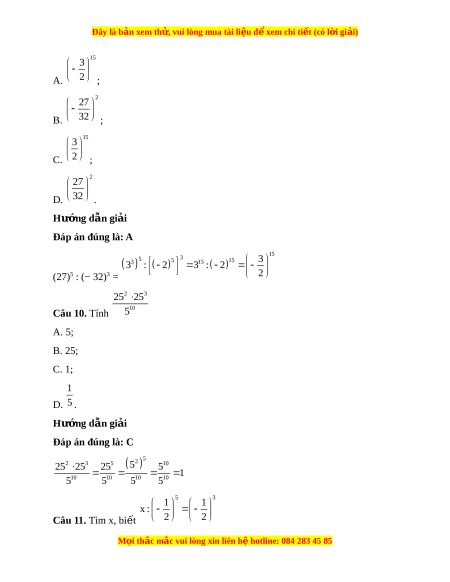 Đây là bản xem thử, vui lòng mua tài liệu để xem chi tiết (có lời giải)
A. (− 3/2)^15 ;
B. (− 27/32)^2 ;
C. (3/2)^15 ;
D. (27/32)^2 .
Hướng dẫn giải
Đáp án đúng là: A
(27)^5 : (− 32)^3 = (3^3)^5 : [(− 2)^5]^3 = 3^15 : (− 2)^15 = (− 3/2)^15
Câu 10. Tính 25^2 · 25^3 / 5^10
A. 5;
B. 25;
C. 1;
D. 1/5 .
Hướng dẫn giải
Đáp án đúng là: C
25^2 · 25^3 / 5^10 = 25^5 / 5^10 = (5^2)^5 / 5^10 = 5^10 / 5^10 = 1
Câu 11. Tìm x, biết x : (− 1/2)^5 = (− 1/2)^3
Mọi thắc mắc vui lòng xin liên hệ hotline: 084 283 45 85